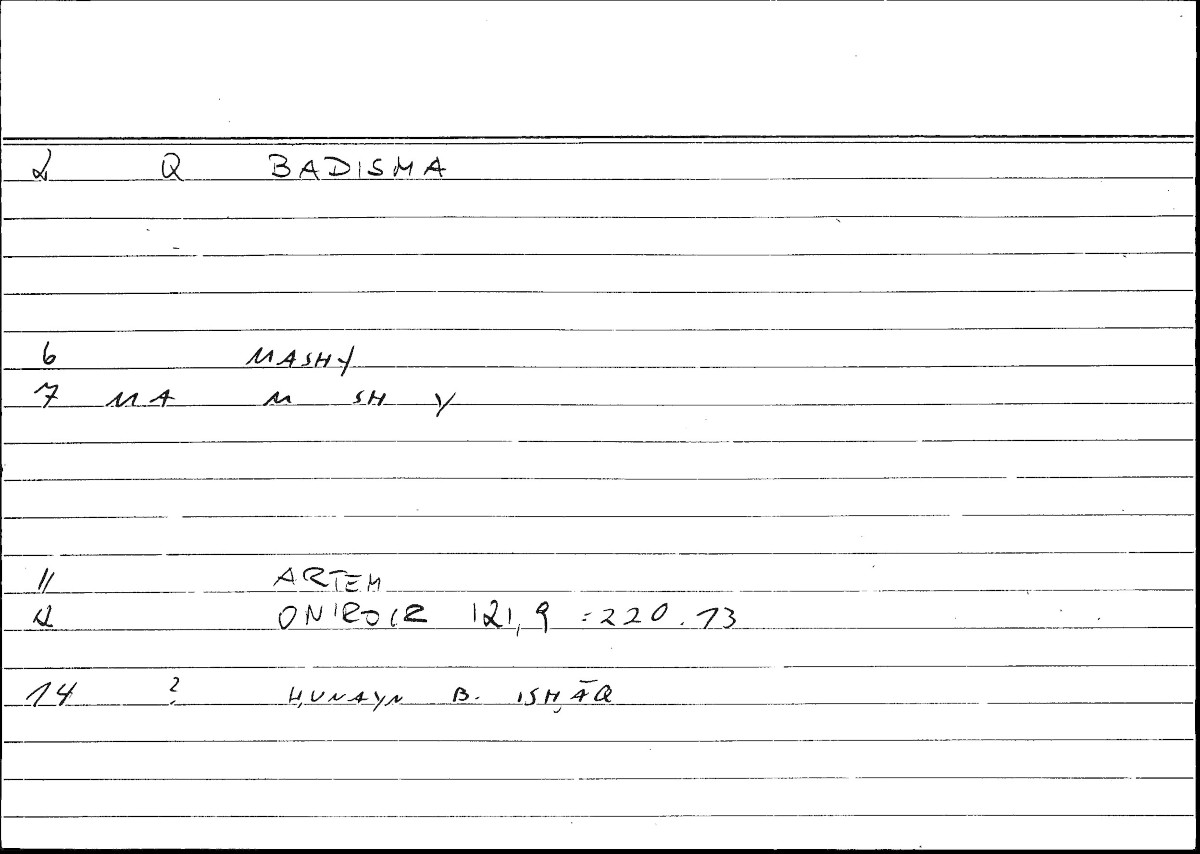 2 Q BADISMA
6 MASHY
7 MA M SH Y
11 ARTEM
12 ONIROCR 121,9 = 220.13
14 ? ḤUNAYN B. ISḤĀQ